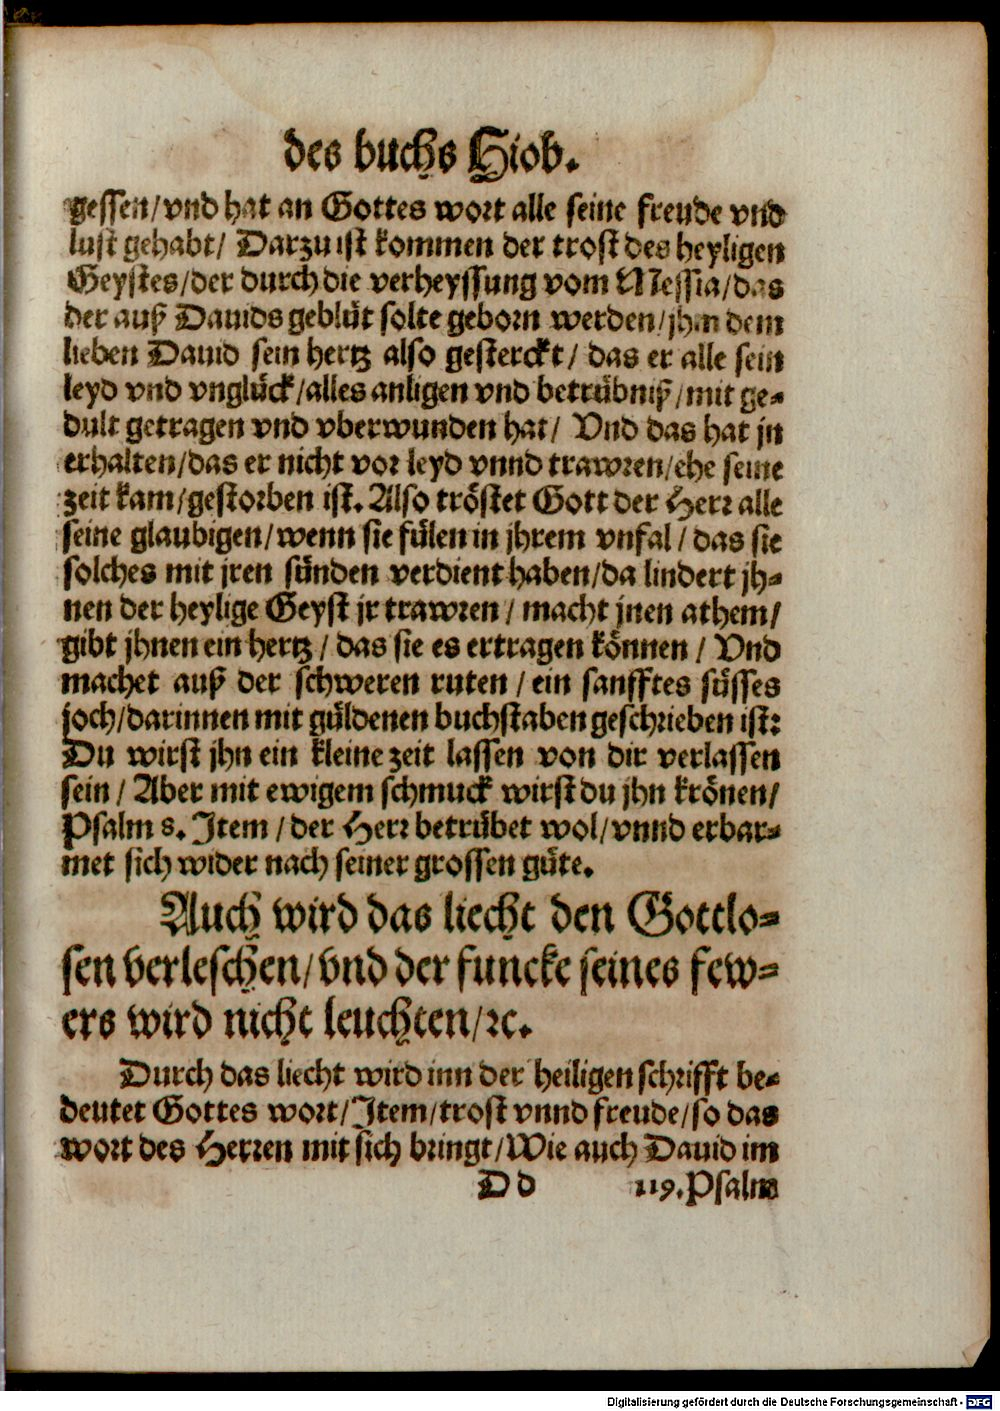 des buchs Hiob.
gessen/vnd hat an Gottes wort alle seine freude vnd
lust gehabt/ Darzu ist kommen der trost des heyligen
Geystes/der durch die verheyssung vom Messia/das
der auß Dauids geblüt solte geborn werden/jhm dem
lieben Dauid sein hertz also gesterckt/ das er alle sein
leyd vnd vnglück/alles anligen vnd betrübniß/mit ge-
dult getragen vnd vberwunden hat/ Vnd das hat jn
erhalten/das er nicht vor leyd vnnd trawren/ehe seine
zeit kam/gestorben ist. Also tröstet Gott der Herr alle
seine glaubigen/wenn sie fülen in jhrem vnfal/das sie
solches mit jren sünden verdient haben/da lindert jh-
nen der heylige Geyst jr trawren/ macht jnen athem/
gibt jhnen ein hertz/ das sie es ertragen können/ Vnd
machet auß der schweren ruten/ ein sanfftes süsses
joch/darinnen mit güldenen buchstaben geschrieben ist:
Du wirst jhn ein kleine zeit lassen von dir verlassen
sein/ Aber mit ewigem schmuck wirst du jhn krönen/
Psalm 8. Item/der Herr betrübet wol/vnnd erbar-
met sich wider nach seiner grossen güte.
Auch wird das liecht den Gottlo-
sen verleschen/vnd der funcke seines few-
ers wird nicht leuchten/ꝛc.
Durch das liecht wird inn der heiligen schrifft be-
deutet Gottes wort/Item/trost vnnd freude/so das
wort des Herren mit sich bringt/Wie auch Dauid im
D d 119.Psalm
Digitalisierung gefördert durch die Deutsche Forschungsgemeinschaft - DFG